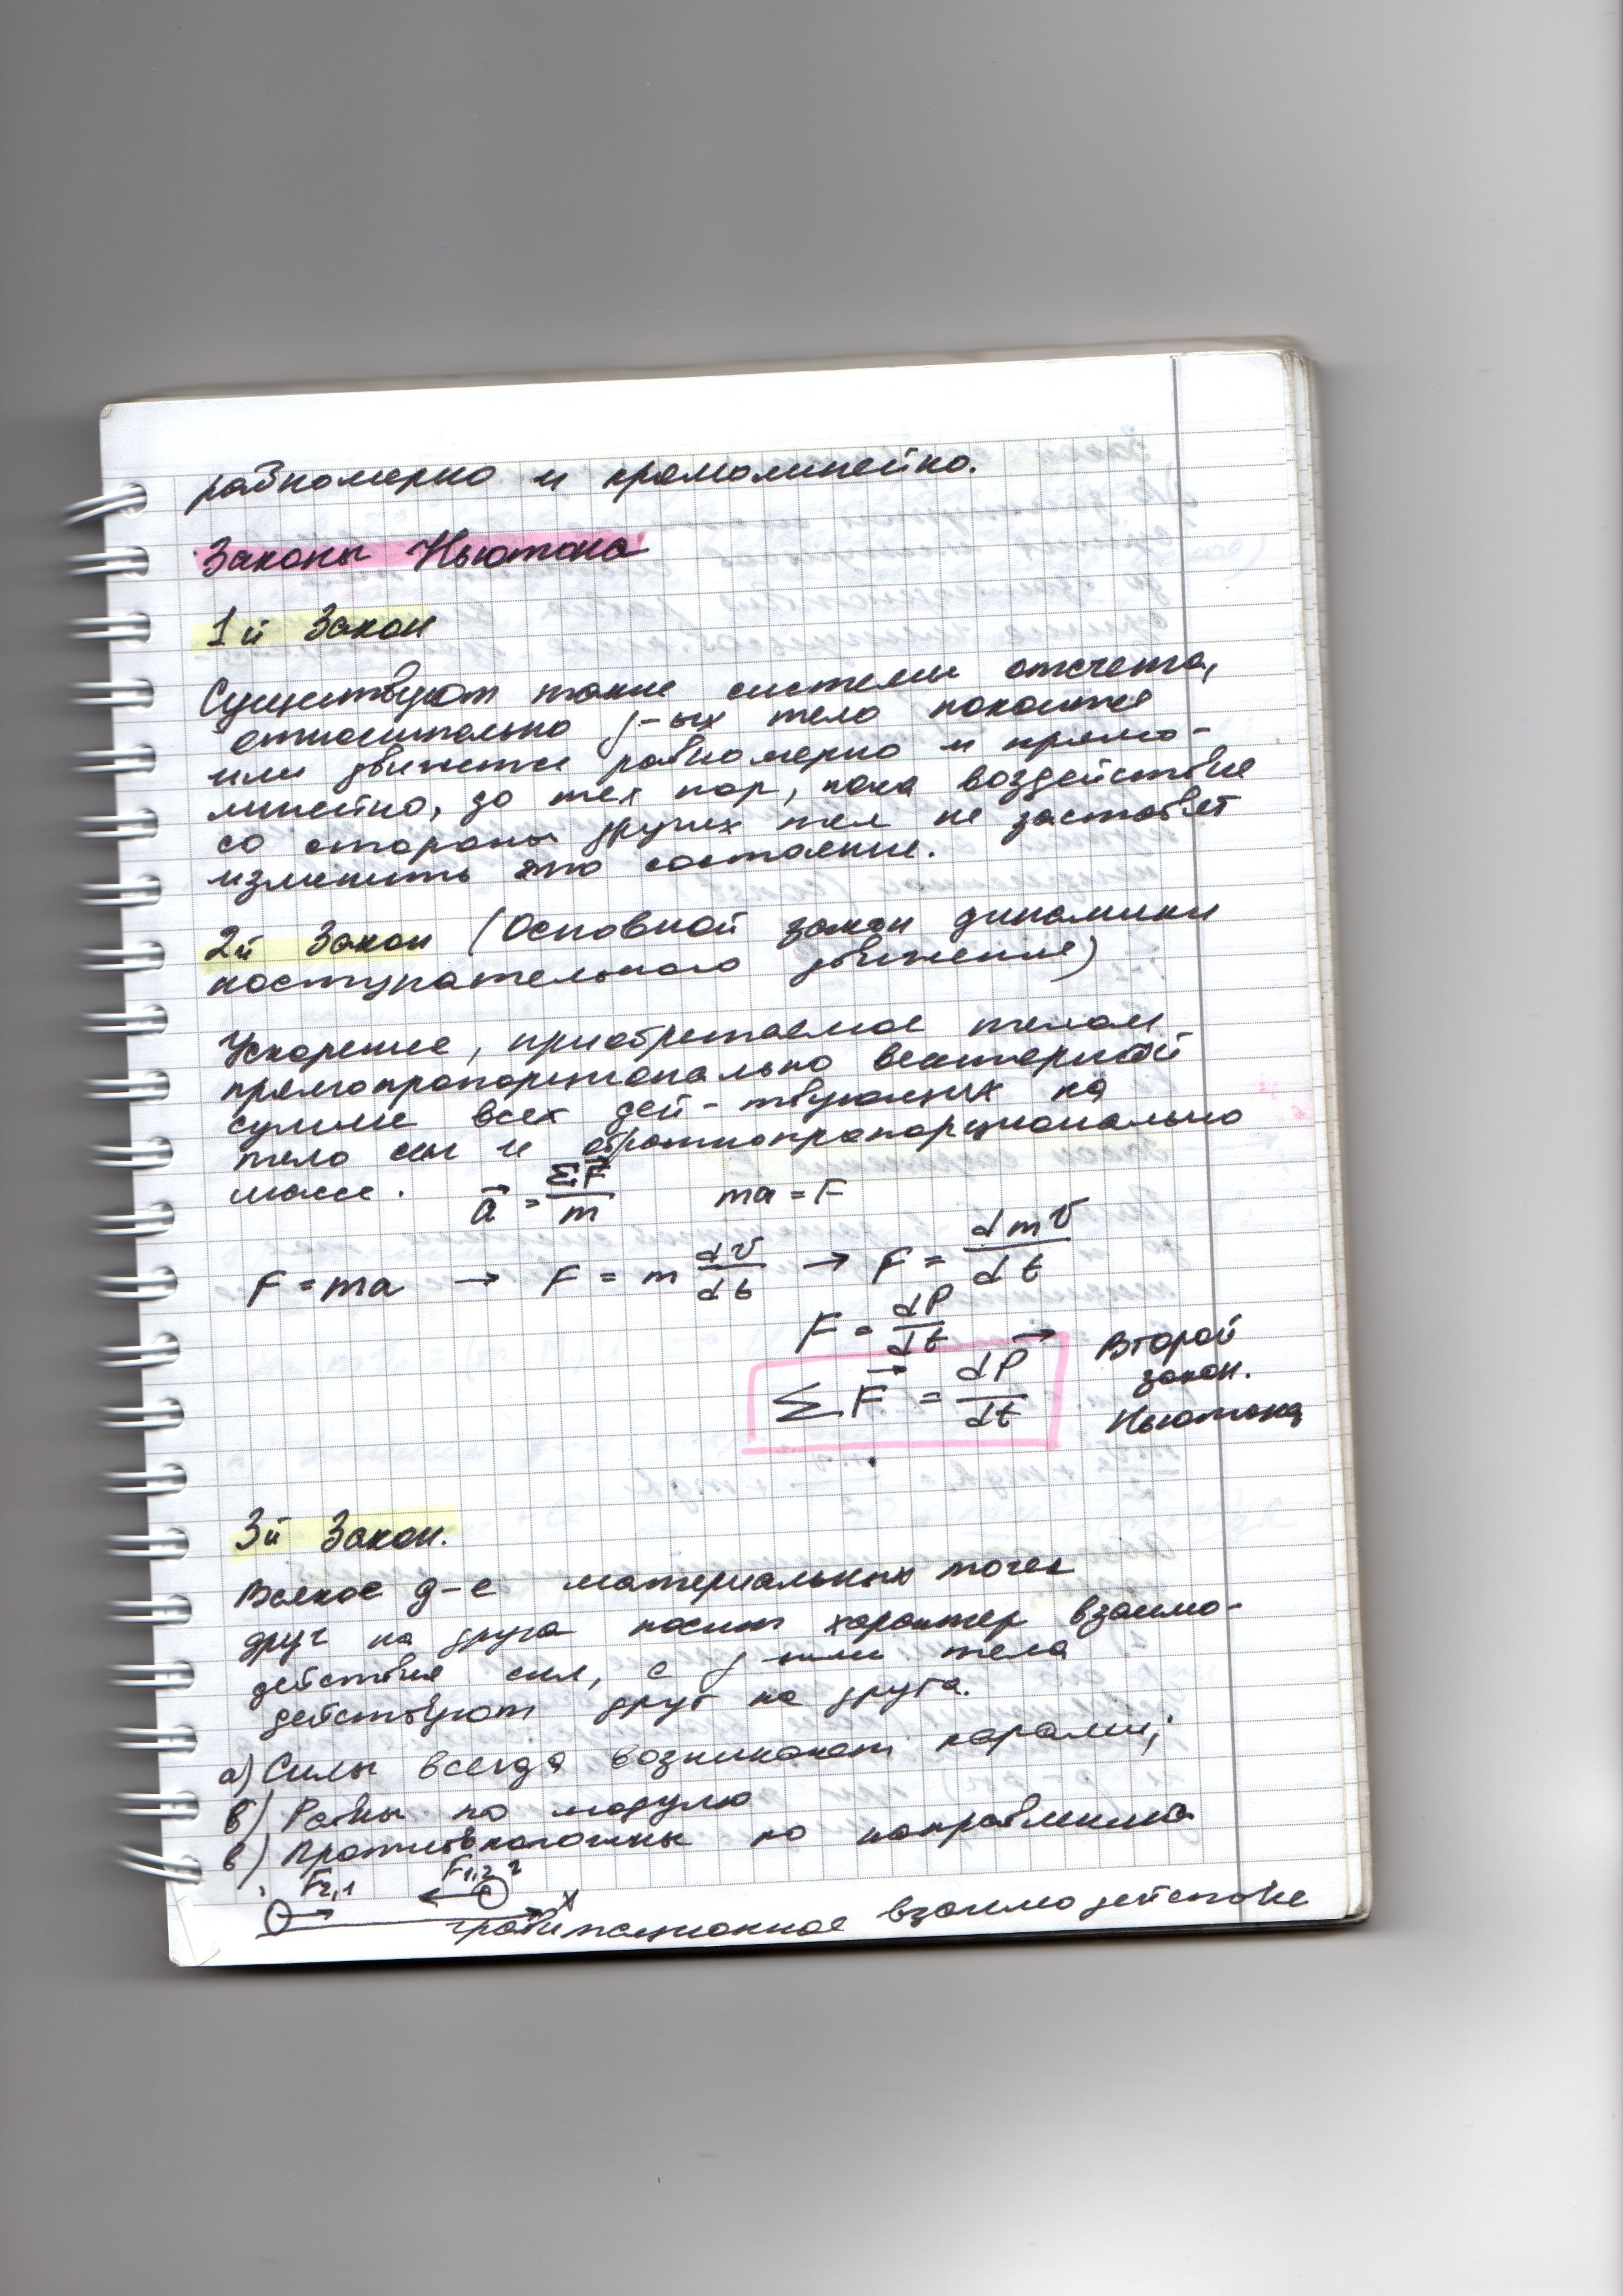 равномерно и прямолинейно.
Законы Ньютона
1й Закон
Существуют такие системы отсчета,
относительно
или движется равномерно и прямо-
линейно, до тех пор, пока воздействие
со стороны других тел не заставят
изменить это состояние.
2й Закон (Основной закон динамики
поступательного движения)
Ускорение, приобретаемое телом
прямопропорционально векторной
сумме всех дей-твующих на
тело сил и обратнопропорционально
массе. a⃗ = ΣF⃗/m ma = F
F = ma → F = m dV/dt → F = dmV/dt
F = dP/dt
ΣF⃗ = dP⃗/dt
Второй
закон.
Ньютона
3й Закон.
Всякое д-е материальных точек
друг на друга носит характер взаимо-
действия сил, с тела
действуют друг на друга.
а) Силы всегда возникают парами;
б) Равны по модулю
в) Противоположны по направлению
F2,1 F1,2 2
x
гравитационное взаимодействие